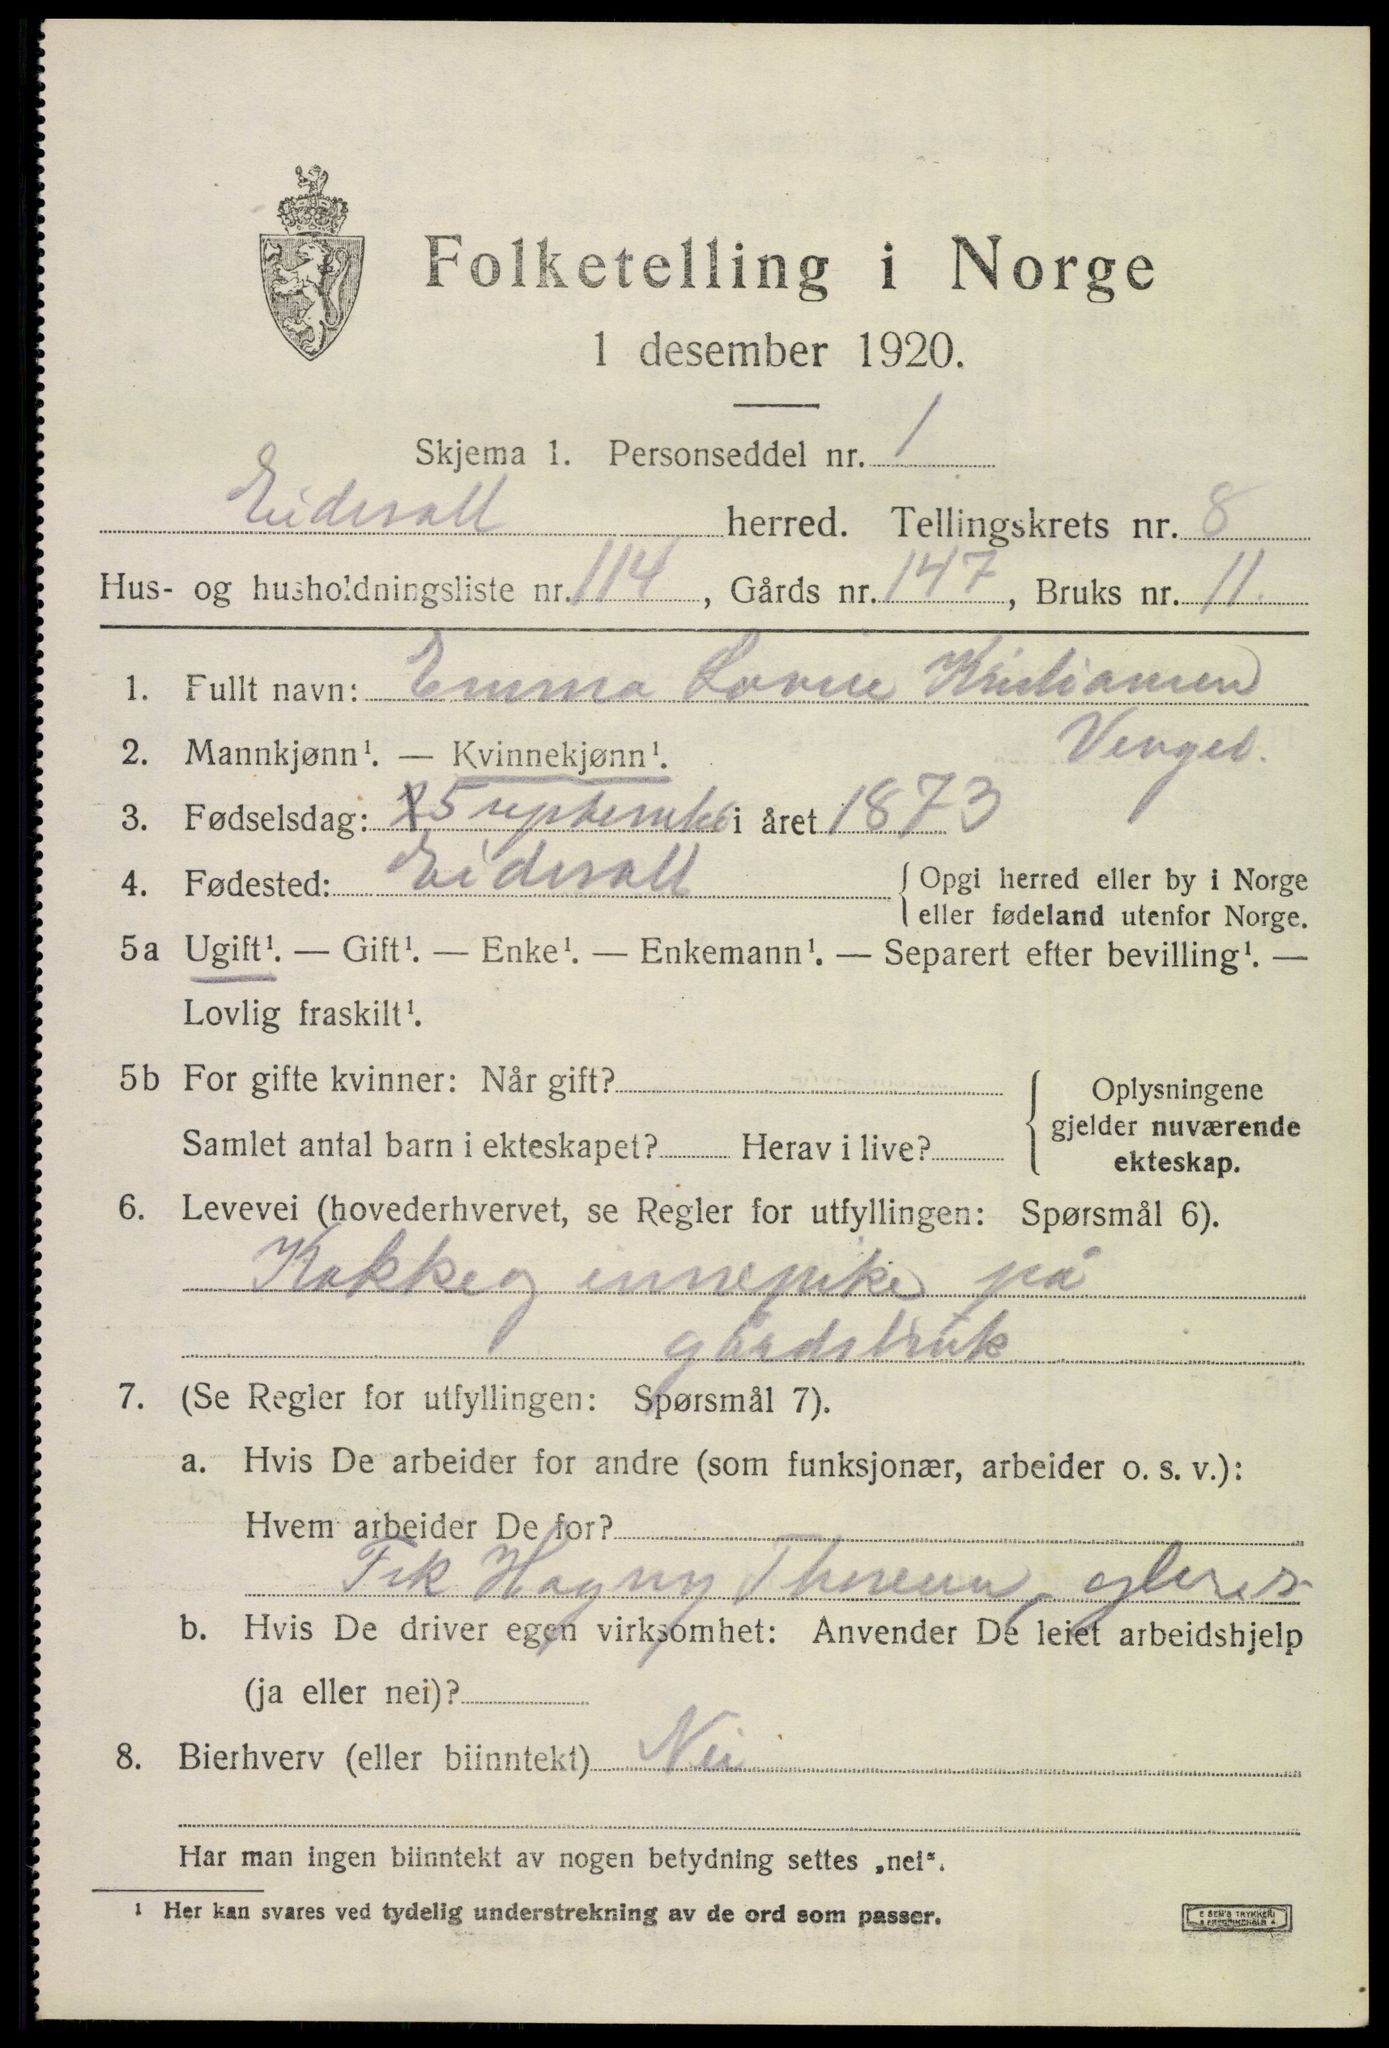 Folketelling i Norge
1 desember 1920.
Skjema 1. Personseddel nr. 1
Eidsvoll herred. Tellingskrets nr. 8
Hus- og husholdningsliste nr. 114, Gårds nr. 147, Bruks nr. 11.
1. Fullt navn: Emma Lovise Kristiansen
2. Mannkjønn¹. — Kvinnekjønn¹.
3. Fødselsdag: 5 september i året 1873
4. Fødested: Eidsvoll { Opgi herred eller by i Norge
eller fødeland utenfor Norge.
5a Ugift¹. — Gift¹. — Enke¹. — Enkemann¹. — Separert efter bevilling¹. —
Lovlig fraskilt¹.
5b For gifte kvinner: Når gift? { Oplysningene
gjelder nuværende
ekteskap.
Samlet antal barn i ekteskapet? Herav i live?
6. Levevei (hovederhvervet, se Regler for utfyllingen: Spørsmål 6).
Kokke og innepike på
gårdsbruk
7. (Se Regler for utfyllingen: Spørsmål 7).
a. Hvis De arbeider for andre (som funksjonær, arbeider o. s. v.):
Hvem arbeider De for?
Frk Hagny
b. Hvis De driver egen virksomhet: Anvender De leiet arbeidshjelp
(ja eller nei)?
8. Bierhverv (eller biinntekt) Nei
Har man ingen biinntekt av nogen betydning settes „nei“.
¹ Her kan svares ved tydelig understrekning av de ord som passer.
E SEM'S TRYKKERI